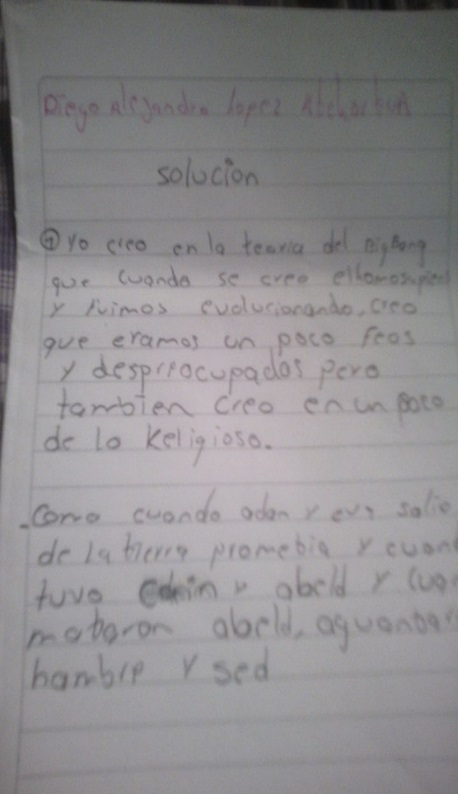 Diego Alejandro lopez
solucion
① Yo creo en la tearia del Big Bang
que cuando se creo elhomosapiens
y fuimos evolucionando, creo
que eramos un poco feos
y despreocupados pero
tambien creo en un poco
de lo Religioso.
-Como cuando adan y eva salio
de la tierra promebia y cuan
tuvo Cain y abeld y cua
mataron abeld, aguantar
hambre y sed